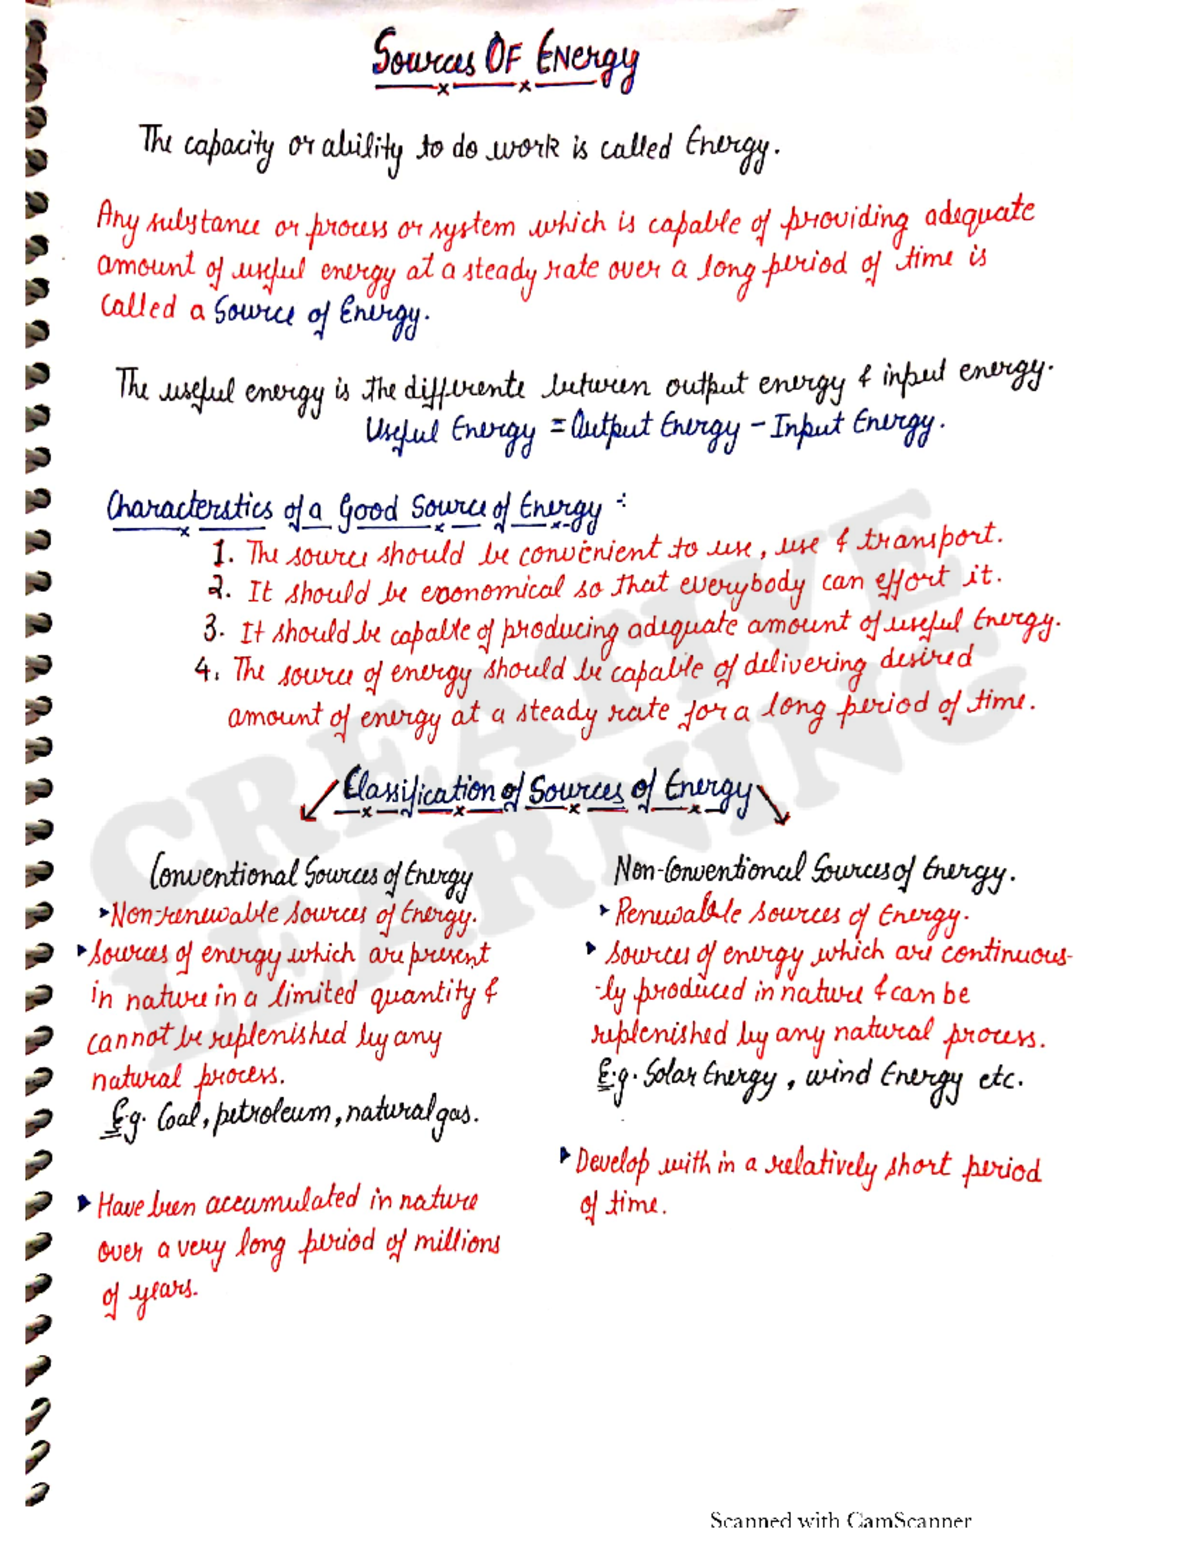 Sources OF ENergy
The capacity or ability to do work is called Energy.
Any substance or process or system which is capable of providing adequate
amount of useful energy at a steady rate over a long period of time is
called a Source of Energy.
The useful energy is the differente between output energy & input energy.
Useful Energy = Output Energy - Input Energy.
Characterstics of a Good Source of Energy :-
1. The source should be convenient to use, use & transport.
2. It should be economical so that everybody can effort it.
3. It should be capable of producing adequate amount of useful Energy.
4. The source of energy should be capable of delivering desired
amount of energy at a steady rate for a long period of time.
Classification of Sources of Energy
Conventional Sources of Energy
Non-renewable sources of Energy.
Sources of energy which are present
in nature in a limited quantity &
cannot be replenished by any
natural process.
E.g. Coal, petroleum, natural gas.
Have been accumulated in nature
over a very long period of millions
of years.
Non-Conventional Sources of Energy.
Renewable sources of Energy.
Sources of energy which are continuous-
-ly produced in nature & can be
replenished by any natural process.
E.g. Solar Energy, wind Energy etc.
Develop with in a relatively short period
of time.
CREATIVE
LEARNING
Scanned with CamScanner